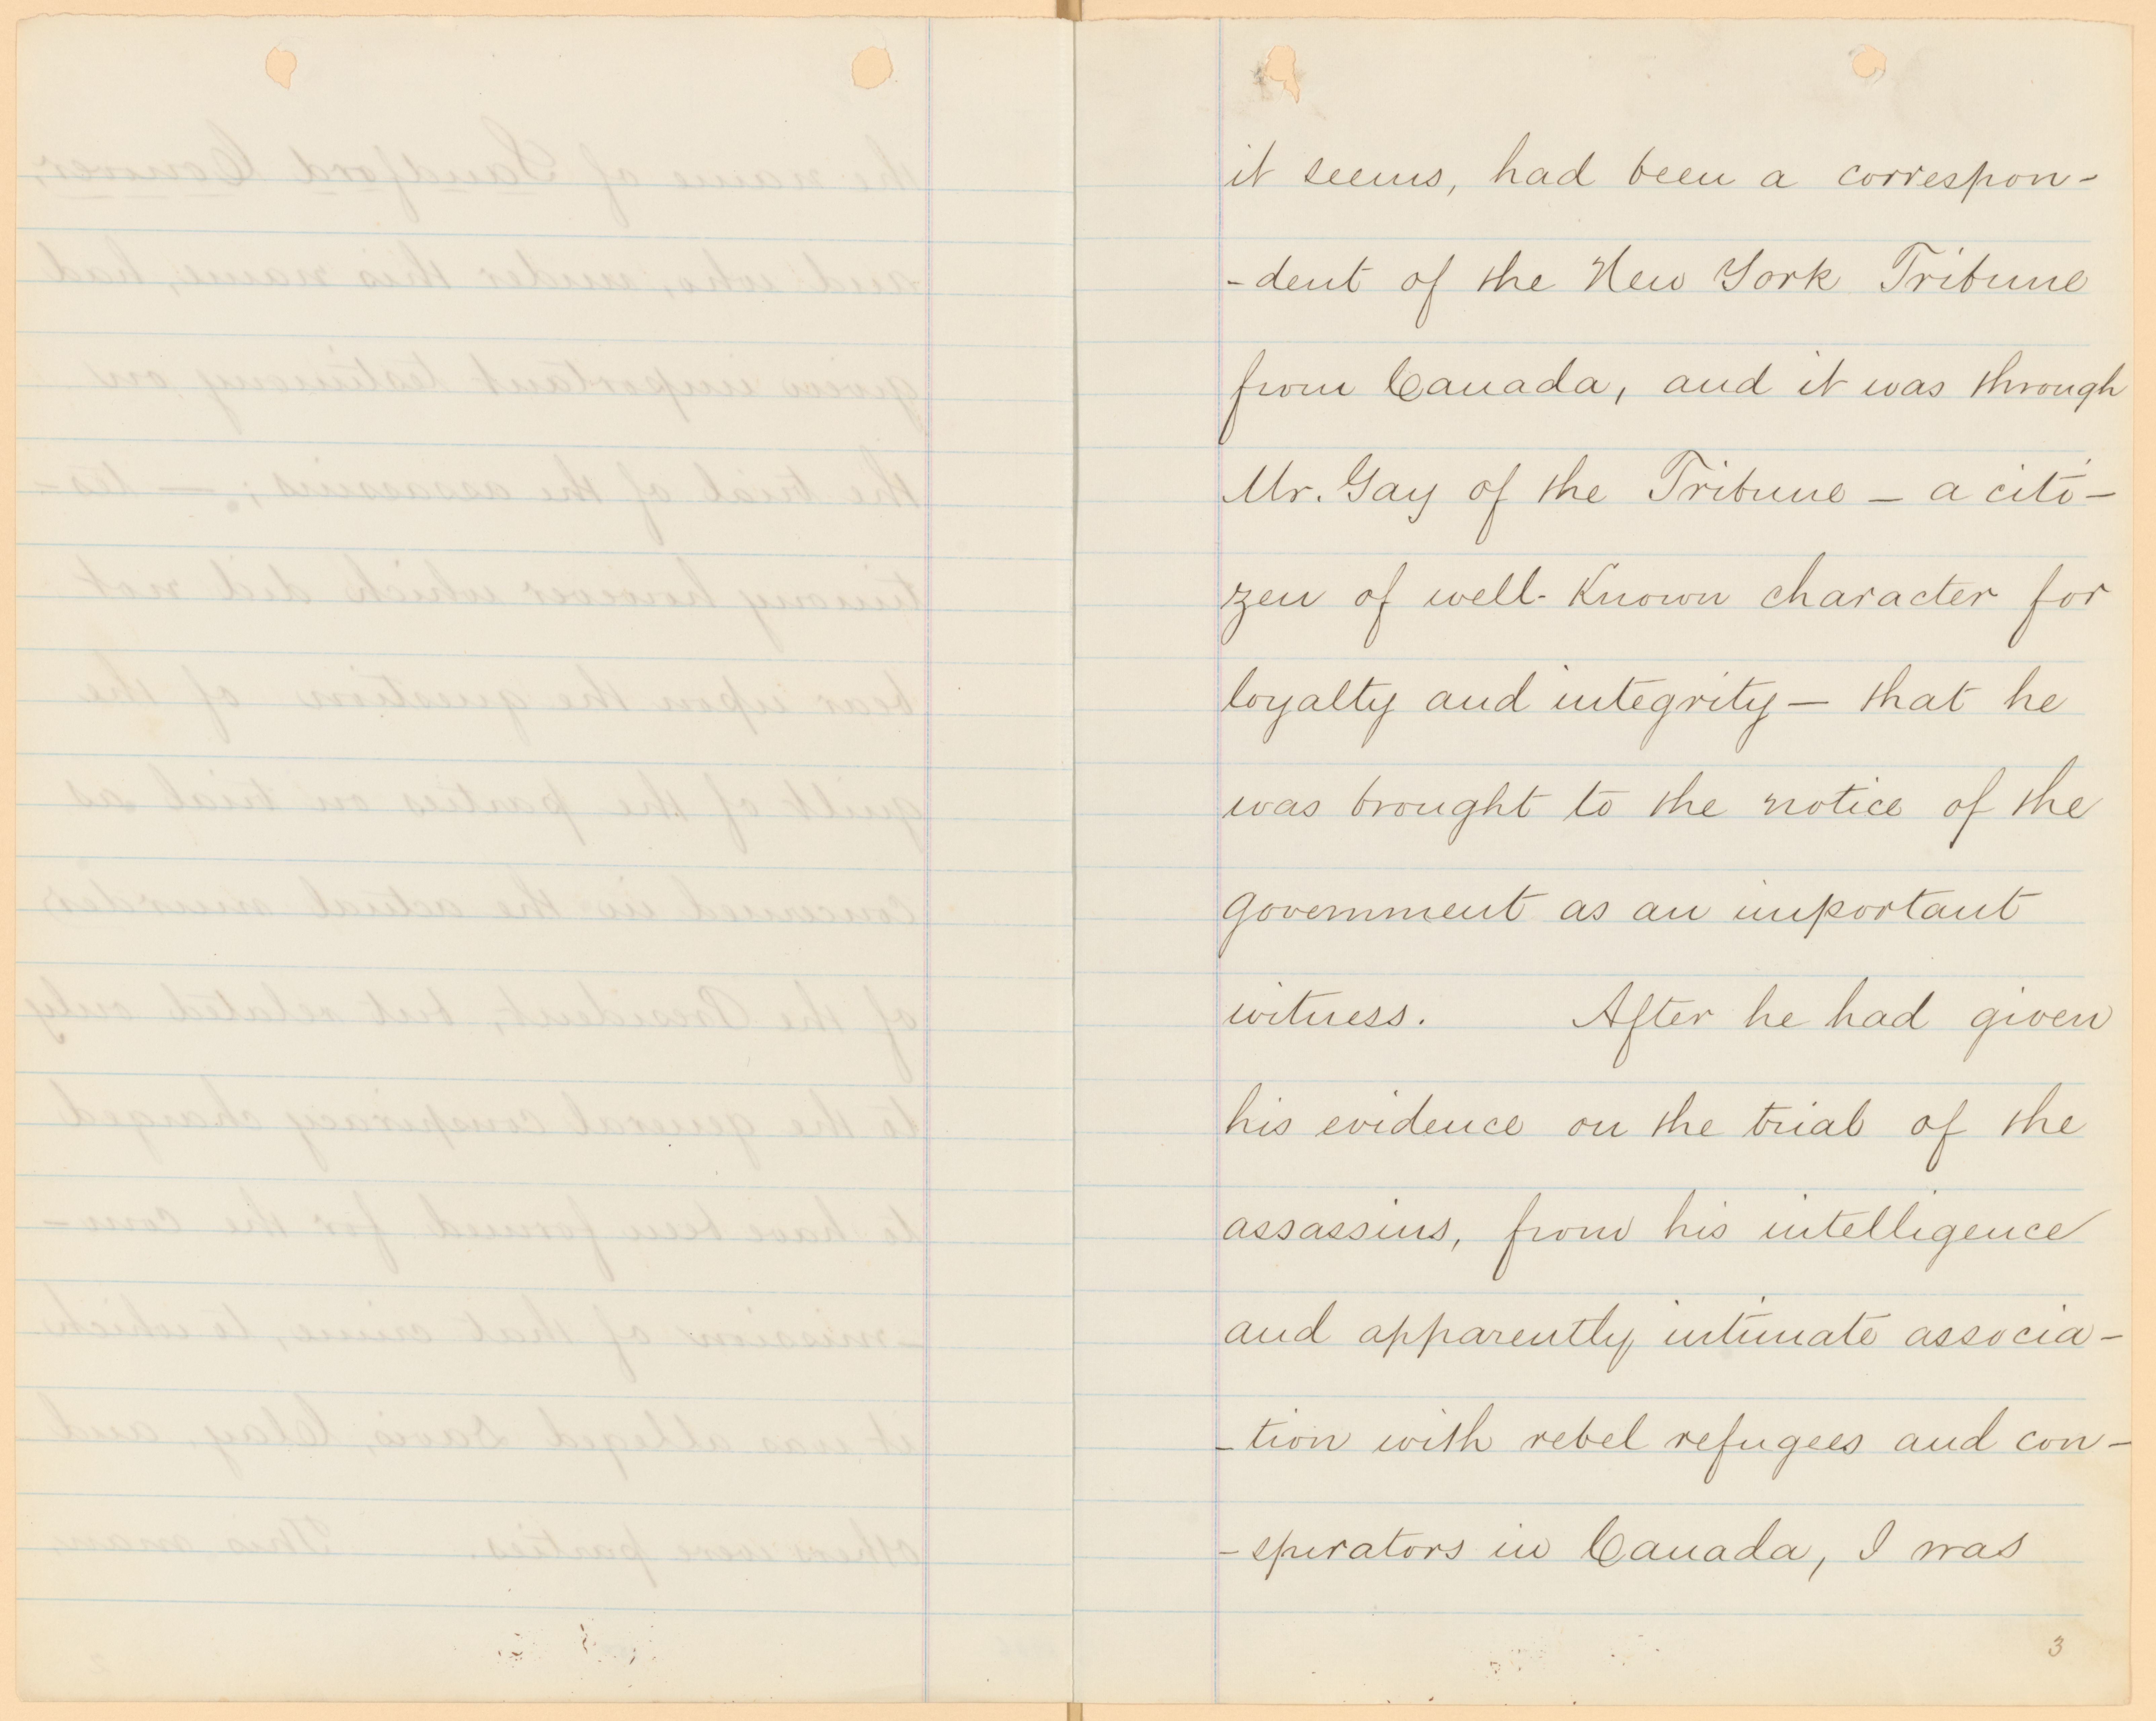 it seems, had been a correspon-
-dent of the New York Tribune
from Canada, and it was through
Mr. Gay of the Tribune — a citi-
zen of well-known character for
loyalty and integrity — that he
was brought to the notice of the
government as an important
witness. After he had given
his evidence on the trial of the
assassins, from his intelligence
and apparently intimate associa-
-tion with rebel refugees and con-
-spirators in Canada, I was
3